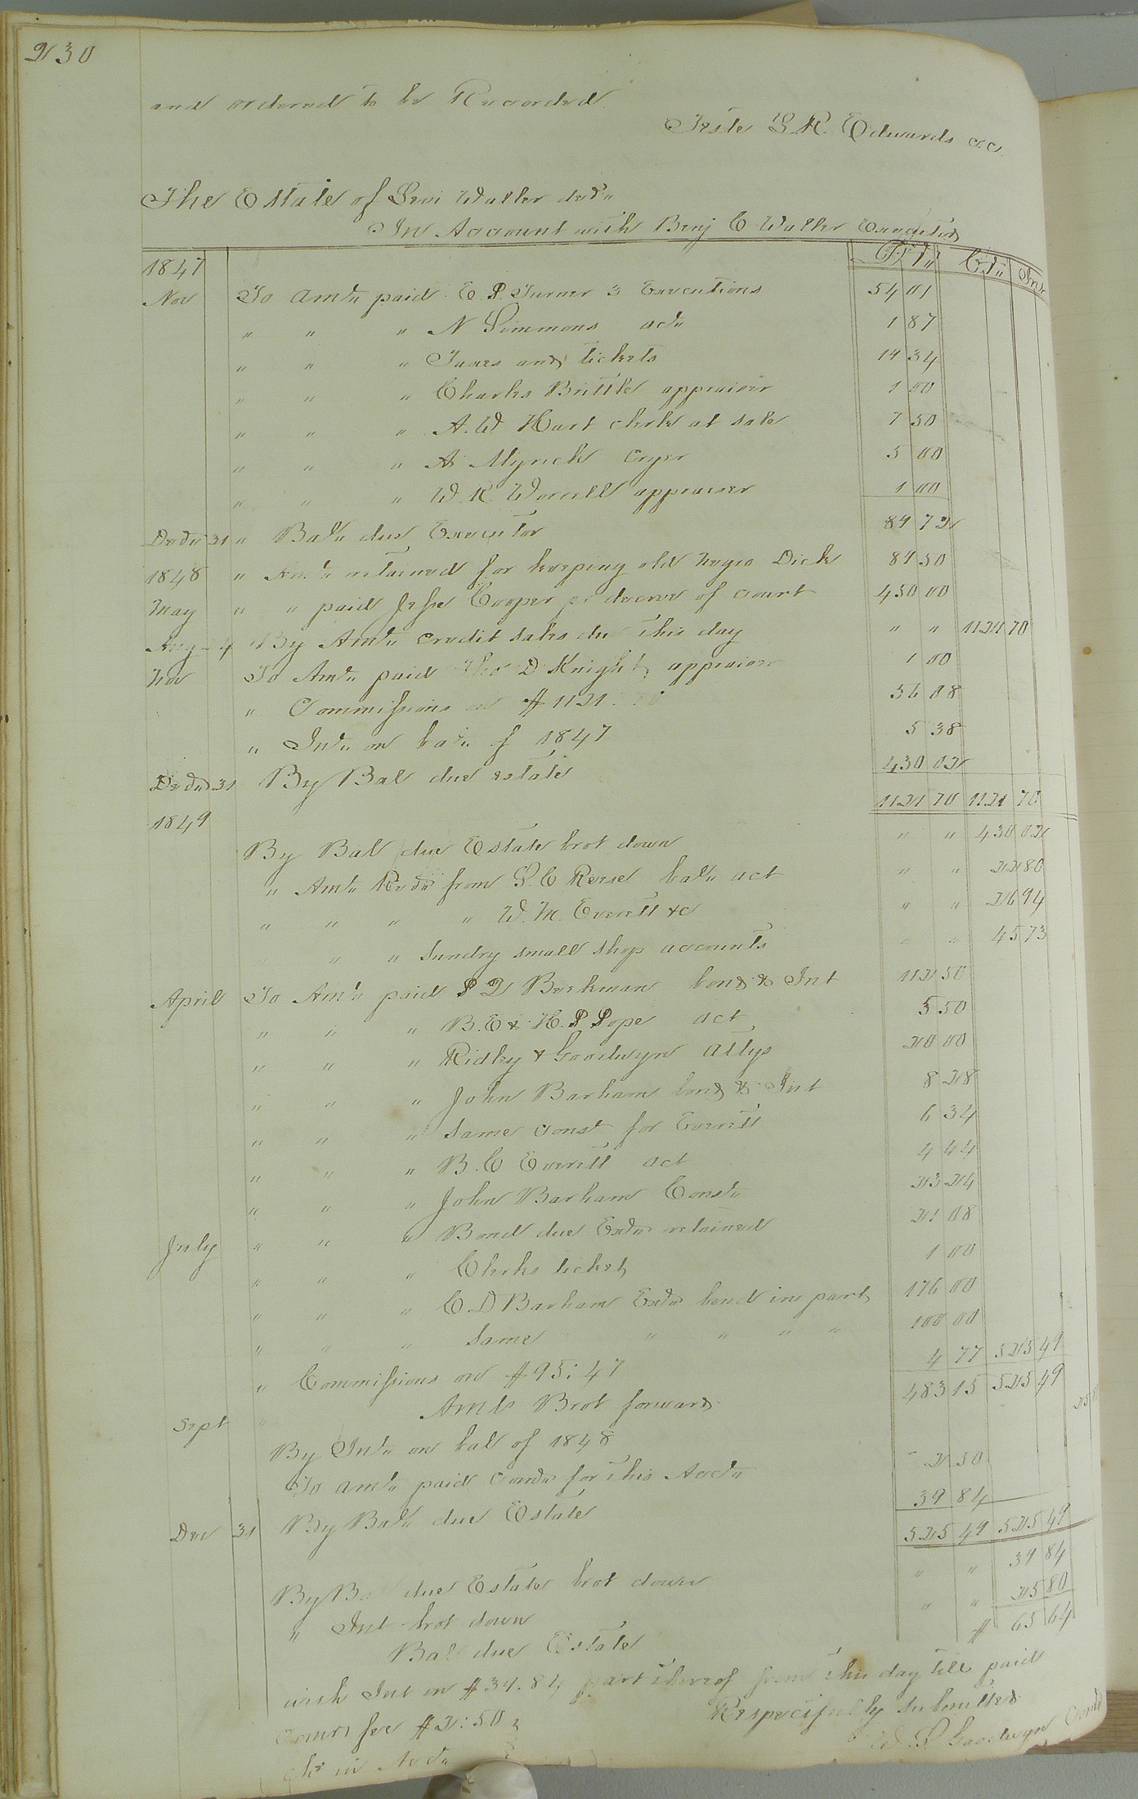 230
and ordered to be Recorded
Teste L. R. Edwards c.c.
The Estate of Levi Waller decd
In Account with Benj C Waller Executor
1847 Drs Cts Ints
Nov To Amt paid E P. Turner 3 Executions 54 01
" " " N Simmons act 1 87
" " " Taxes and tickets 14 34
" " " Charles Brittle appraiser 1 00
" " " A. W Hart clerk at sale 7 50
" " " A Myrick Cryer 5 00
" " " W. R. Worrell appraiser 1 00
Decr 31 " Balce due Executor 84 72
1848 " Amt retained for keeping old negro Dick 84 50
May " " paid Jesse Cooper pr decree of court 450 00
Aug 4 By Amt credit sales due this day " " 1121 70
Nov To Amt paid Tho D Knight appraiser 1 00
" Commissions on $1121. 56 08
" Int on bal of 1847 5 38
Decr 31 By Bal due estate 430 02
1121 70 1121 70
1849
By Bal due Estate brot down " " 430 02
" Amt Recd from L. C Reese bal act " " 22 80
" " " " W. M. Everitt &c " " 26 94
" " " Sundry small shop accounts " " 45 73
April To Amt paid P D Barkman bond & Int 112 50
" " " B. E & H. P Pope act 5 50
" " " Ridley & Goodwyn Attys 20 00
" " " John Barham bond & Int 8 28
" " " Same Const for Everitt 6 34
" " " B. C Everitt act 4 44
" " " John Barham Const 23 24
July " " " Bond due Exor retained 21 08
" " " Clerks ticket 1 00
" " " C D Barham Exor bond in part 176 00
" " " Same " " " " 100 00
" Commissions on $95:47 4 77 525 49
Amts Brot forward 483 15 525 49
Sept By Int on bal of 1848 25 80
To amt paid Comr for this Acct 2 50
Dec 31 By Bal due Estate 39 84
525 49 525 49
By Bal due Estate brot down " " 39 84
" Int brot down " " 25 80
Bal due Estate $ 65 64
with Int on $39.84 part thereof from this day till paid
Comrs fee $2:50 Respectfully submitted
in Acct W. S. Goodwyn Comr